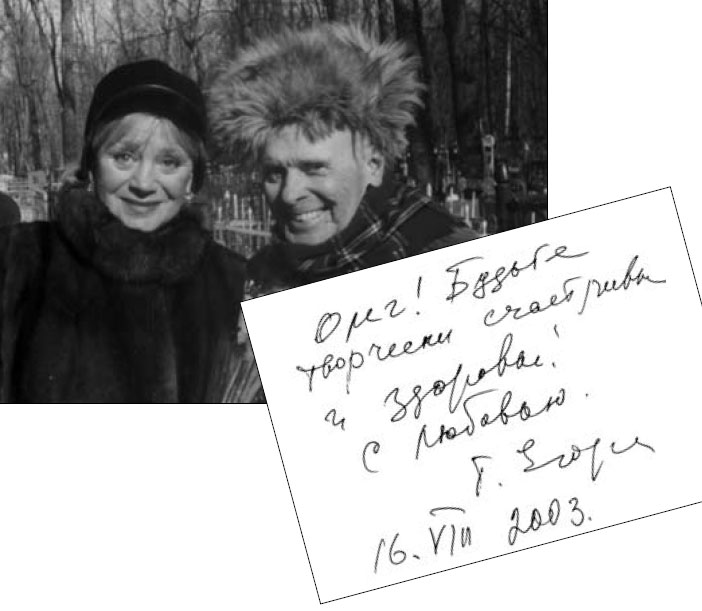 Олег! Будьте
творчески счастливы
и здоровы!
С любовью.
Т. Егор
16.VIII 2003.